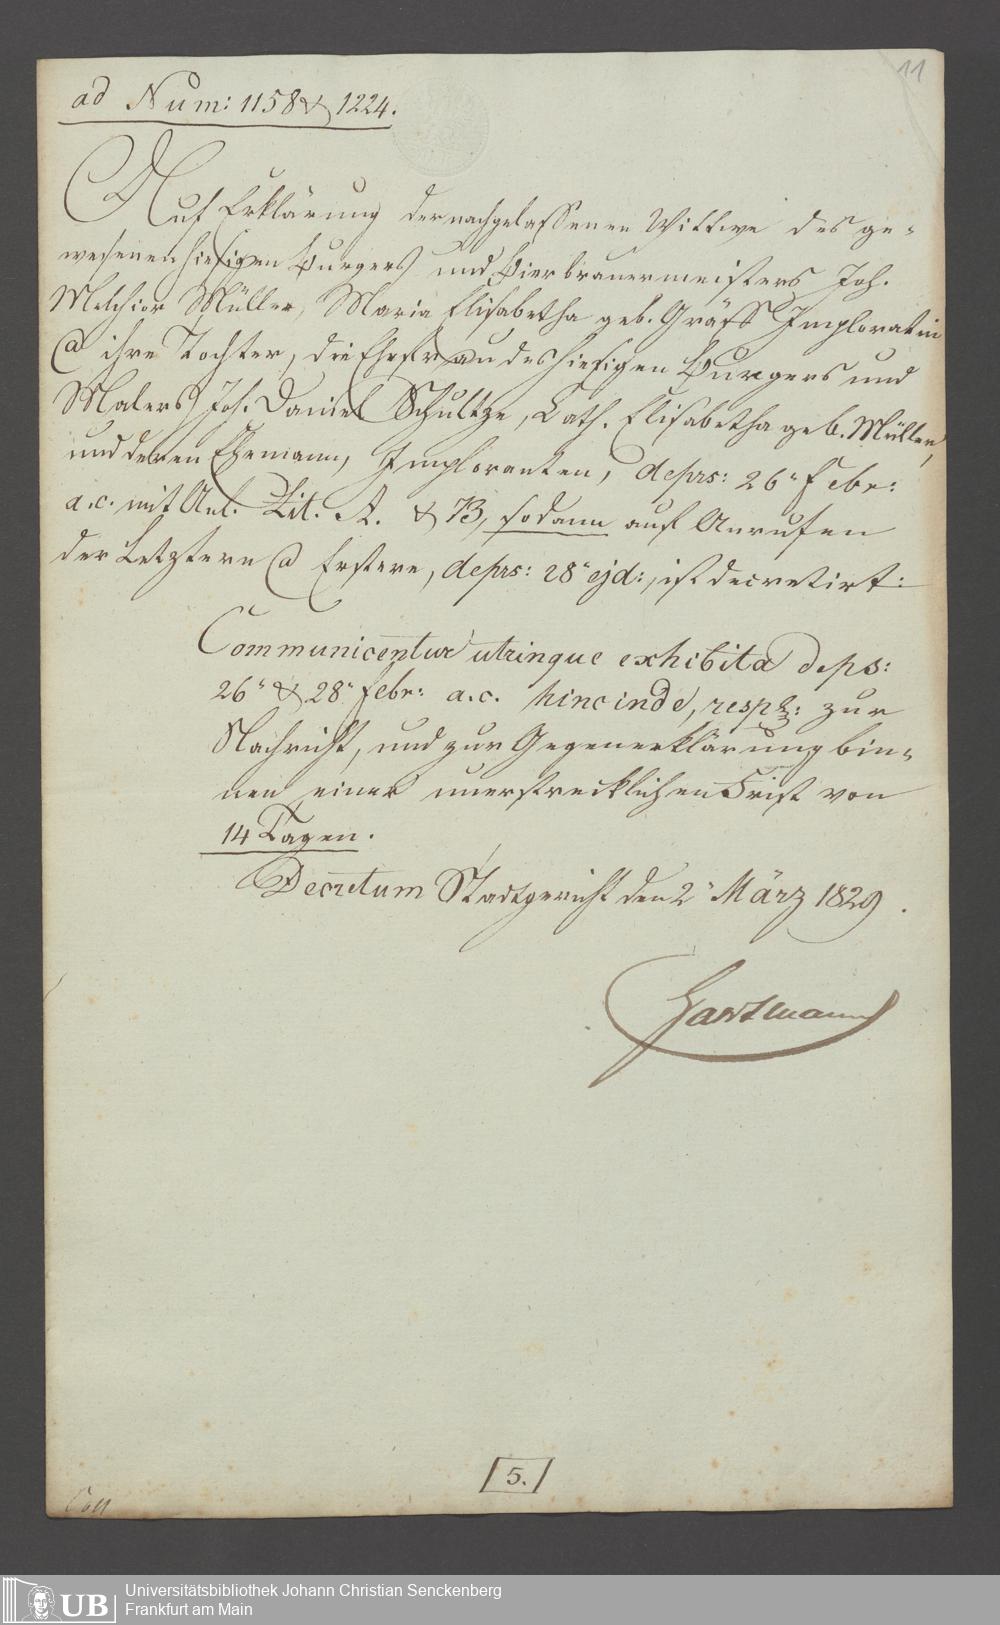 11
ad Num: 1158 & 1224.
Auf Erklärung der nachgelassenen Wittwe des ge-
wesenen hiesigen Burgers und Bierbrauermeisters Joh.
Melchior Müller, Maria Elisabetha geb. Gräff Imploratin
@ ihre Tochter, die Ehefrau des hiesigen Burgers und
Malers Joh. Daniel Schultze, Cath. Elisabetha geb. Müller,
und deren Ehemann, Imploranten, deprs: 26" Febr:
a.c. mit Anl. Lit. A. & B, sodann auf Anrufen
der Letztern @ Erstere, deprs: 28" ejd:, ist decretirt:
Communicentur utrinque exhibita deps:
26" & 28" Febr: a.c. hinc inde, resp: zur
Nachricht, und zur Gegenerklärung bin-
nen einer unerstrecklichen Frist von
14 Tagen.
Decretum Stadtgericht den 2" März 1829.
Hartmann
5.
Coll
UB
Universitätsbibliothek Johann Christian Senckenberg
Frankfurt am Main